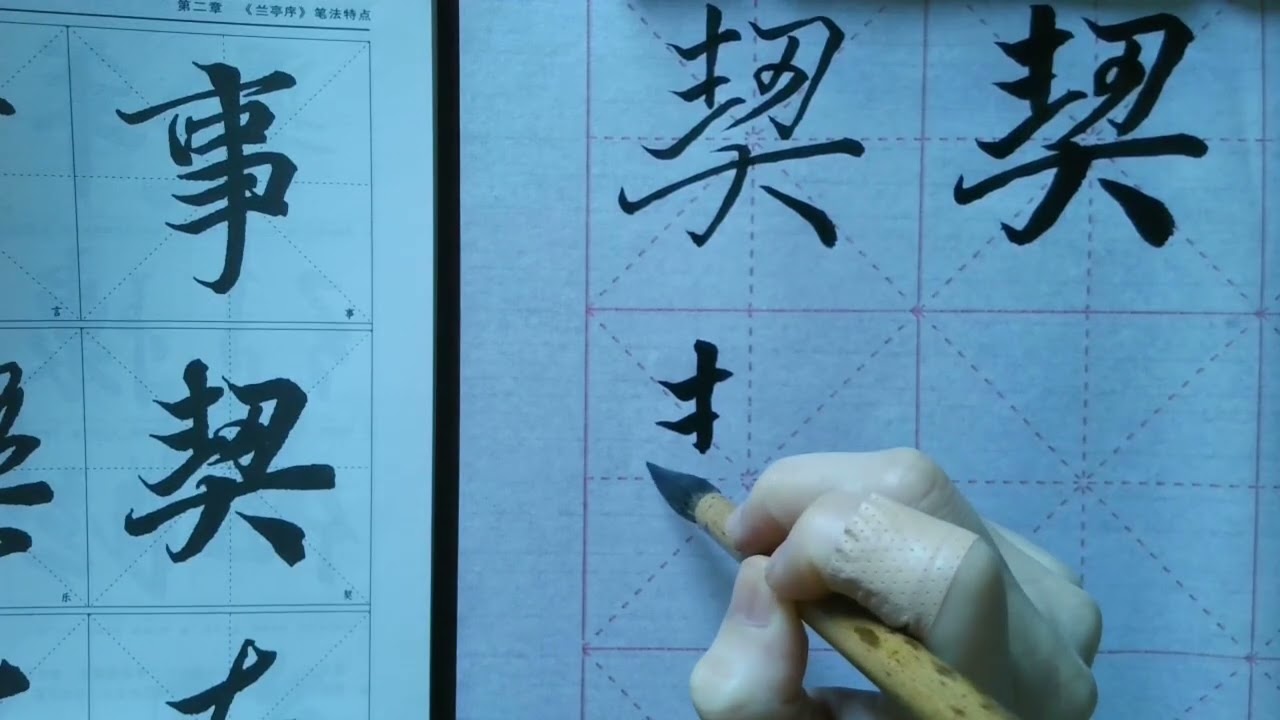 第二章 《兰亭序》笔法特点
事
言 事
契
乐 契
契 契